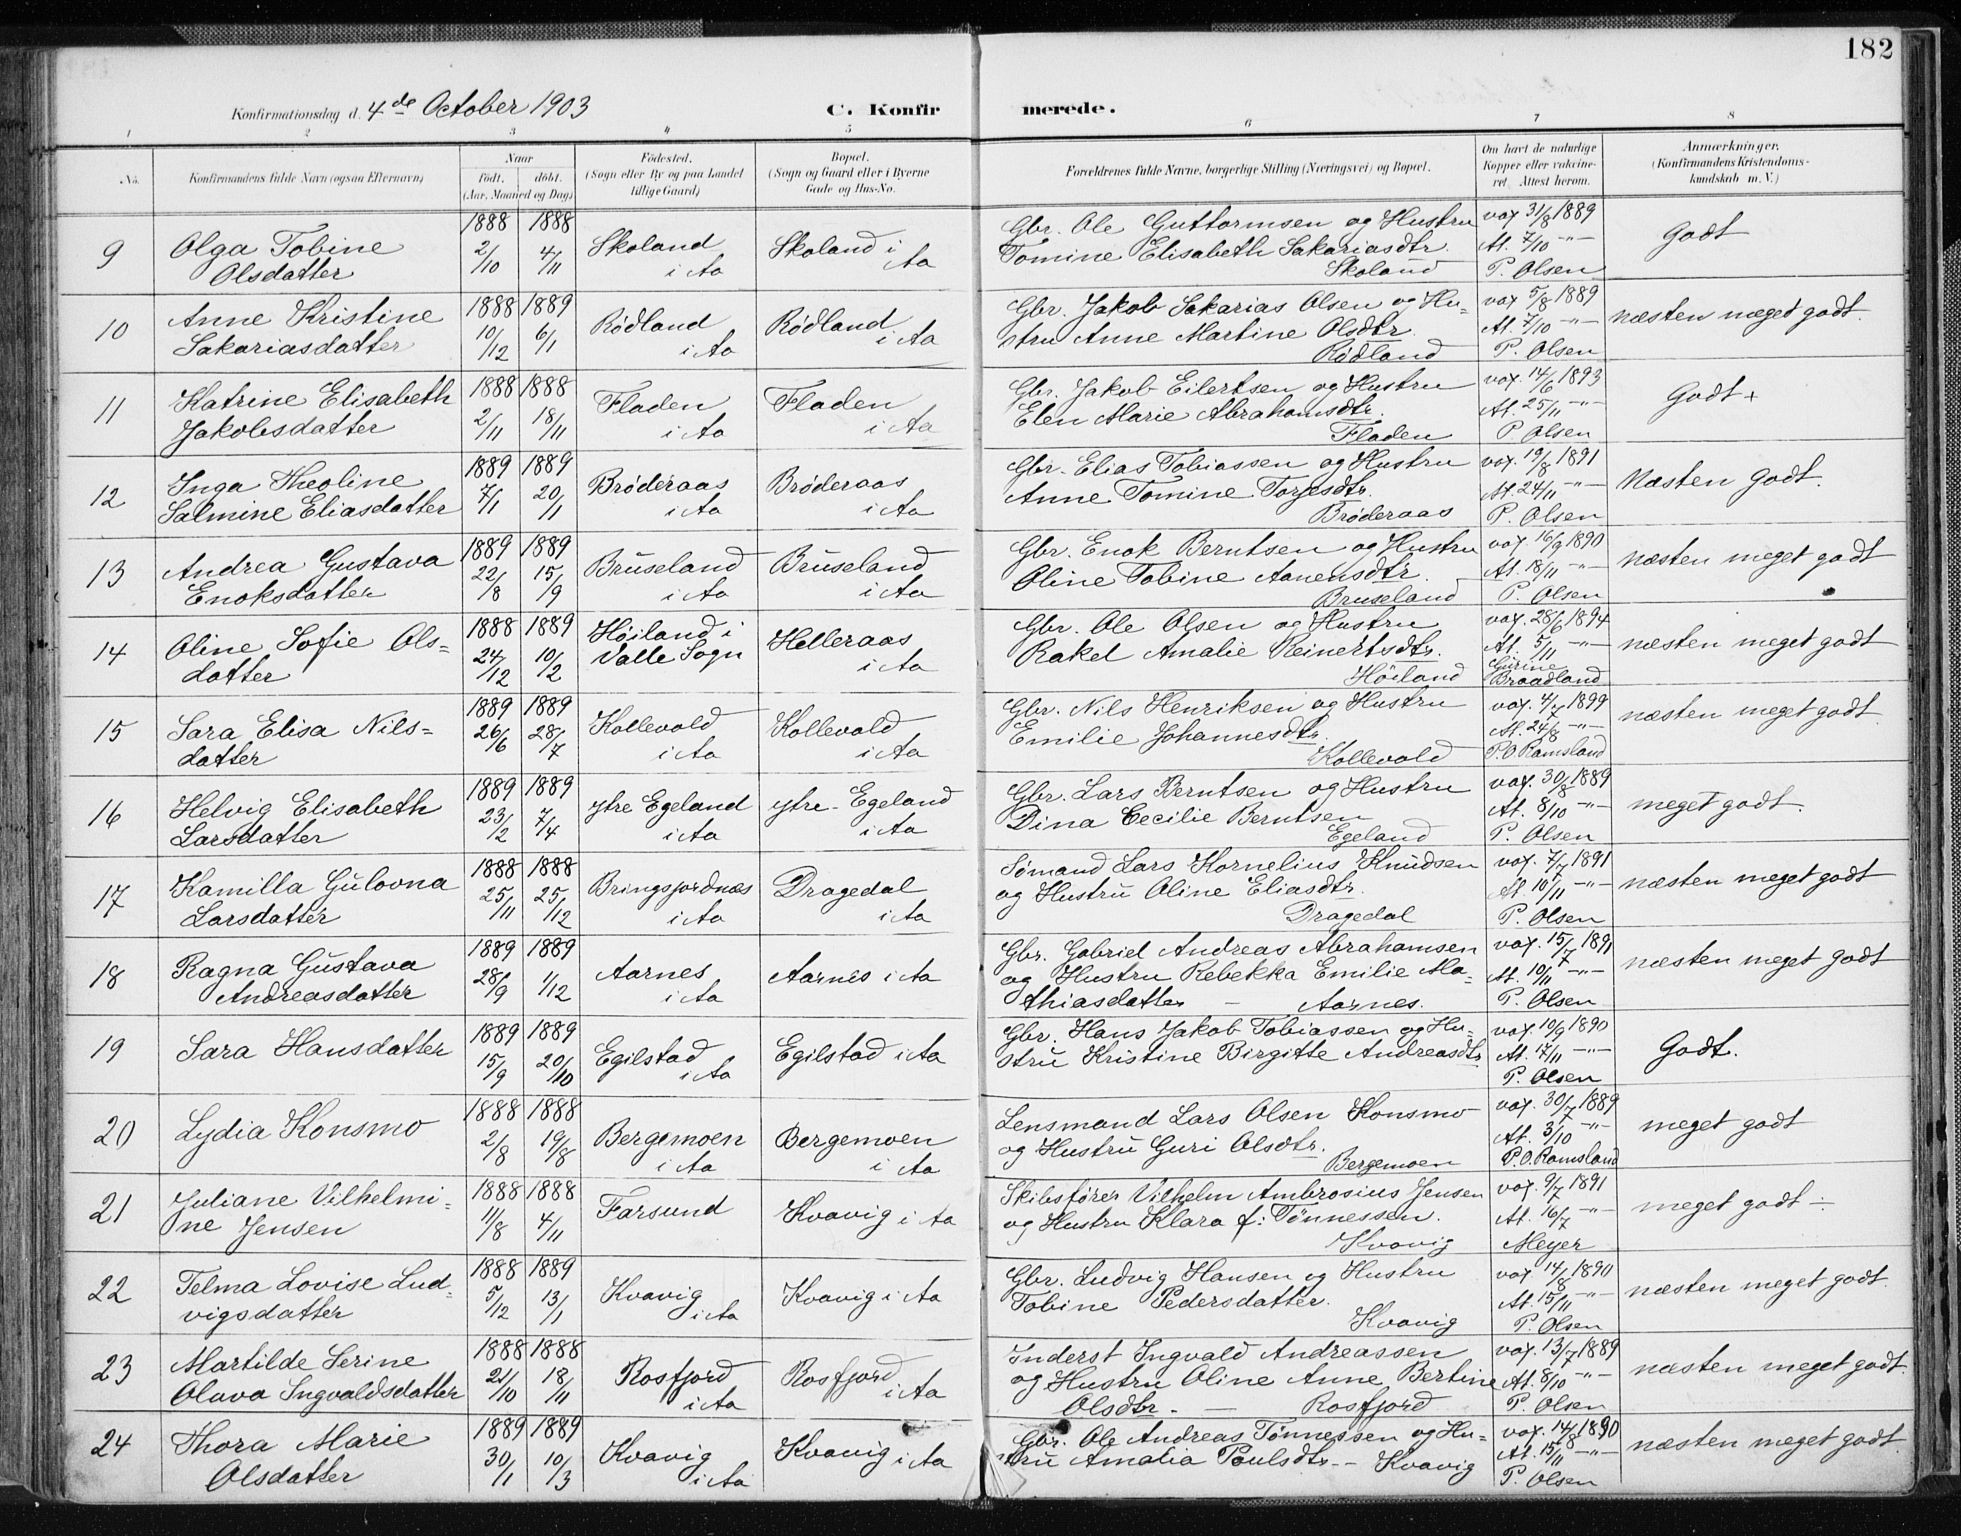 182
Konfirmationsdag d. 4de October 1903
C. Konfirmerede.
1 2 3 4 5 6 7 8
No.
Konfirmandens fulde Navn (ogsaa Efternavn)
Naar
født. døbt.
(Aar, Maaned og Dag)
Fødested.
(Sogn eller By og paa Landet
tillige Gaard)
Bopæl.
(Sogn og Gaard eller i Byerne
Gade og Hus-No.
Forældrenes fulde Navne, borgerlige Stilling (Næringsvei) og Bopæl.
Om havt de naturlige
Kopper eller vakcine-
ret. Attest herom.
Anmærkninger.
(Konfirmandens Kristendoms-
kundskab m. V.)
9 Olga Tobine
Olsdatter
1888 2/10
1888 4/11
Skoland
i Aa
Skoland i
Aa
Gbr. Ole Guttormsen og Hustru
Tomine Elisabeth Sakariasdtr.
Skoland
vax. 31/8 1889
At. 7/10 -"-
P. Olsen
Godt
10 Anne Kristine
Sakariasdatter
1888 10/12
1889 6/1
Rødland
i Aa
Rødland
i Aa
Gbr. Jakob Sakarias Olsen og Hu-
stru Anne Martine Olsdtr.
Rødland
vax. 5/8 1889
At. 7/10 -"-
P. Olsen
næsten meget godt.
11 Katrine Elisabeth
Jakobsdatter
1888 2/11
1888 18/11
Fladen
i Aa
Fladen
i Aa
Gbr. Jakob Eilertsen og Hustru
Elen Marie Abrahamsdtr.
Fladen
vax. 14/6 1893
At. 25/11 -"-
P. Olsen
Godt +
12 Inga Theoline
Salmine Eliasdatter
1889 7/1
1889 20/1
Brøderaas
i Aa
Brøderaas
i Aa
Gbr. Elias Tobiassen og Hustru
Anne Tomine Torjesdtr.
Brøderaas
vax. 19/8 1891
At. 24/11 -"-
P. Olsen
Næsten Godt.
13 Andrea Gustava
Enoksdatter
1889 22/8
1889 15/9
Bruseland
i Aa
Bruseland
i Aa
Gbr. Enok Berntsen og Hustru
Oline Tobine Aanensdtr.
Bruseland
vax. 16/9 1890
At. 18/11 -"-
P. Olsen
næsten meget godt
14 Oline Sofie Ols-
datter
1888 24/12
1889 10/2
Høiland i
Valle Sogn
Helleraas
i Aa
Gbr. Ole Olsen og Hustru
Rakel Amalie Reinertsdtr.
Høiland
vax. 28/6 1894
At. 5/11 -"-
Gurine
Braadland
næsten meget godt
15 Sara Elisa Nils-
datter
1889 26/6
1889 28/7
Kollevold
i Aa
Kollevold
i Aa
Gbr. Nils Henriksen og Hustru
Emilie Johannesdtr.
Kollevold
vax. 4/7 1899
At. 24/8 -"-
P. O. Ramsland
næsten meget godt
16 Helvig Elisabeth
Larsdatter
1889 23/2
1889 7/4
ytre Egeland
i Aa
ytre-Egeland
i Aa
Gbr. Lars Berntsen og Hustru
Dina Cecilie Berntsen
Egeland
vax. 30/8 1889
At. 8/10 -"-
P. Olsen
meget godt.
17 Kamilla Gulovna
Larsdatter
1888 25/11
1888 25/12
Bringsjordnæs
i Aa
Dragedal
i Aa
Sømand Lars Kornelius Knudsen
og Hustru Oline Eliasdtr.
Dragedal
vax. 7/7 1891
At. 10/11 -"-
P. Olsen
næsten meget godt
18 Ragna Gustava
Andreasdatter
1889 28/9
1889 1/12
Aarnes
i Aa
Aarnes i Aa
Gbr. Gabriel Andreas Abrahamsen
og Hustru Rebekka Emilie Ma-
thiasdatter - Aarnes.
vax. 15/7 1891
At. 10/11 -"-
P. Olsen
næsten meget godt
19 Sara Hansdatter
1889 15/9
1889 20/10
Egilstad
i Aa
Egilstad i Aa
Gbr. Hans Jakob Tobiassen og Hu-
stru Kristine Birgitte Andreasdtr
vax. 10/9 1890
At. 17/11 -"-
P. Olsen
Godt.
20 Lydia Konsmo
1888 2/8
1888 19/8
Bergemoen
i Aa
Bergemoen
i Aa
Lensmand Lars Olsen Konsmo
og Hustru Guri Olsdtr.
Bergemoen
vax. 30/7 1889
At. 3/10 -"-
P. O. Ramsland
meget godt
21 Juliane Vilhelmi-
ne Jensen
1888 11/8
1888 4/11
Farsund
Kvavig i Aa
Skibsfører Vilhelm Ambrosius Jensen
og Hustru Klara f: Tønnessen.
Kvavig
vax. 9/7 1891
At. 16/7 -"-
Meyer
meget godt -
22 Telma Lovise Lud-
vigsdatter
1888 5/12
1889 13/1
Kvavig
i Aa
Kvavig i Aa
Gbr. Ludvig Hansen og Hustru
Tobine Pedersdatter.
Kvavig
vax. 14/8 1890
At. 15/11 -"-
P. Olsen
næsten meget godt.
23 Martilde Serine
Olava Ingvaldsdatter
1888 21/10
1888 18/11
Rosfjord
i Aa
Rosfjord
i Aa
Inderst Ingvald Andreassen
og Hustru Oline Anne Bertine
Olsdtr. - Rosfjord
vax. 13/7 1889
At. 8/10 -"-
P. Olsen
næsten meget godt.
24 Thora Marie
Olsdatter
1889 30/1
1889 10/3
Kvavig
i Aa
Kvavig i Aa
Gbr. Ole Andreas Tønnessen og Hu-
stru Amalia Poulsdtr. - Kvavig
vax. 14/8 1890
At. 15/11 -"-
P. Olsen
næsten meget godt